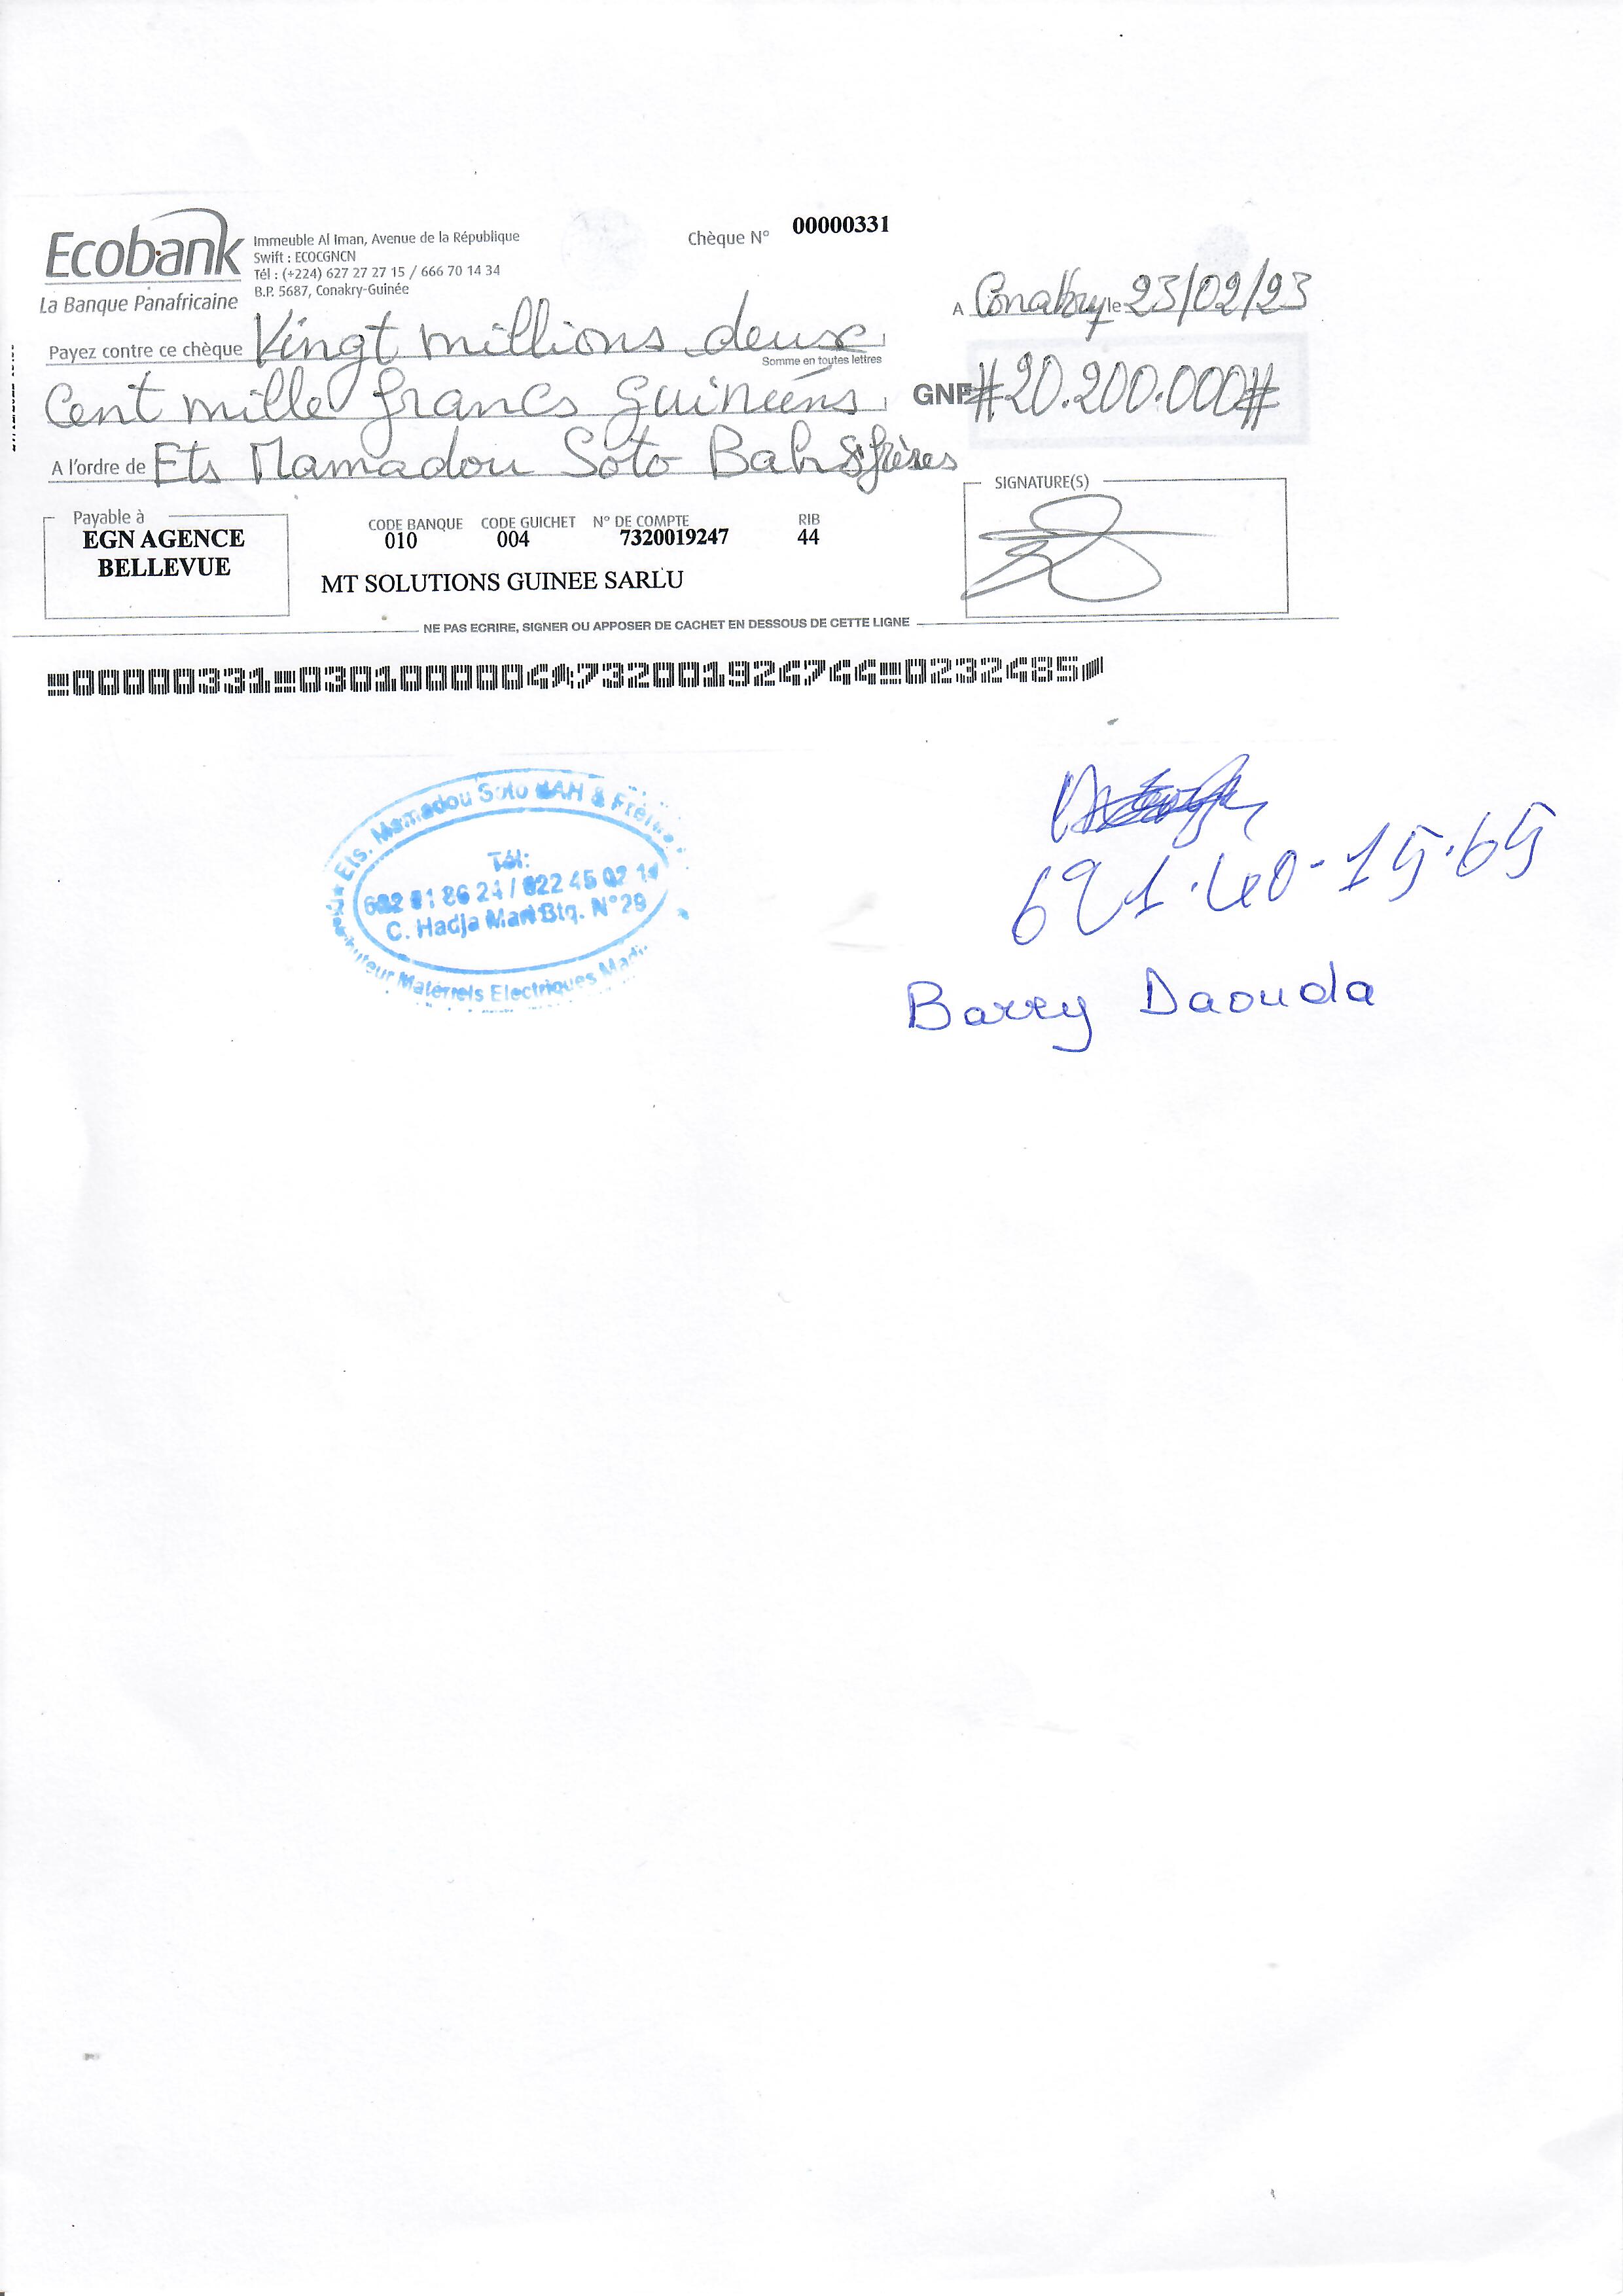 Ecobank
La Banque Panafricaine
Immeuble Al Iman, Avenue de la République
Swift : ECOCGNCN
Tél : (+224) 627 27 27 15 / 666 70 14 34
B.P. 5687, Conakry-Guinée
Chèque N° 00000331
A Conakry le 23/02/23
Payez contre ce chèque Vingt millions deux
Somme en toutes lettres
Cent mille francs guinéens
GNF #20.200.000#
A l'ordre de Ets Mamadou Soto Bah & frères
Payable à
EGN AGENCE
BELLEVUE
CODE BANQUE CODE GUICHET N° DE COMPTE RIB
010 004 7320019247 44
MT SOLUTIONS GUINEE SARLU
SIGNATURE(S)
NE PAS ECRIRE, SIGNER OU APPOSER DE CACHET EN DESSOUS DE CETTE LIGNE
00000331 0301000004 732001924744 0232485
Ets. Mamadou Soto BAH & Frères
Tél:
622 45 02
C. Hadja Btq. N°29
Electriques
621.40-15.65
Barry Daouda